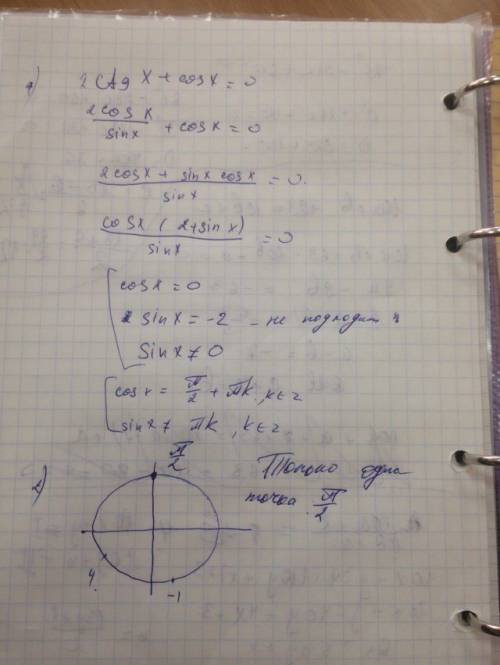 а) 2 ctg x + cosx = 0
2 cos x / sinx + cosx = 0
2 cosx + sinx cosx / sinx = 0.
cosx (2+sinx) / sinx = 0
cosx = 0
sinx = -2 - не подходит
sinx ≠ 0
cosx = π/2 + πk, k∈z
sinx ≠ πk, k∈z
2) π/2
Только одна
точка π/2
4
-1